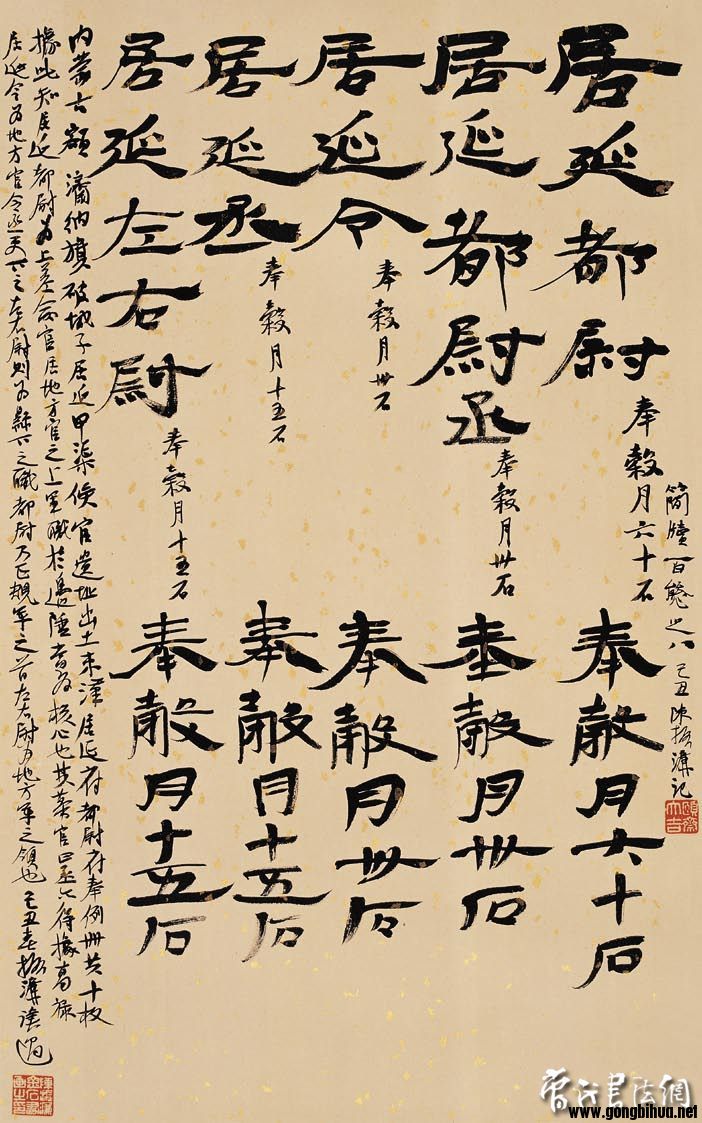 居延都尉
奉穀月六十石
奉穀月六十石
簡牘百態之八 己丑陳振濂記
居延都尉丞
奉穀月卅石
奉穀月卅石
居延令
奉穀月卅石
奉穀月卅石
居延丞
奉穀月十五石
奉穀月十五石
居延左右尉
奉穀月十五石
奉穀月十五石
內蒙古額濟納旗破城子居延甲渠候官遺址出土東漢居延府都尉府奉例冊共十枚
據此知居延都尉為上差命官居地方官之上置職於邊陲當為核心也其
居延令為地方官令丞 之左右尉則為縣下之職都尉乃正規軍之首左右尉為地方軍之領也 己丑春振濂讀
www.gongbihua.net